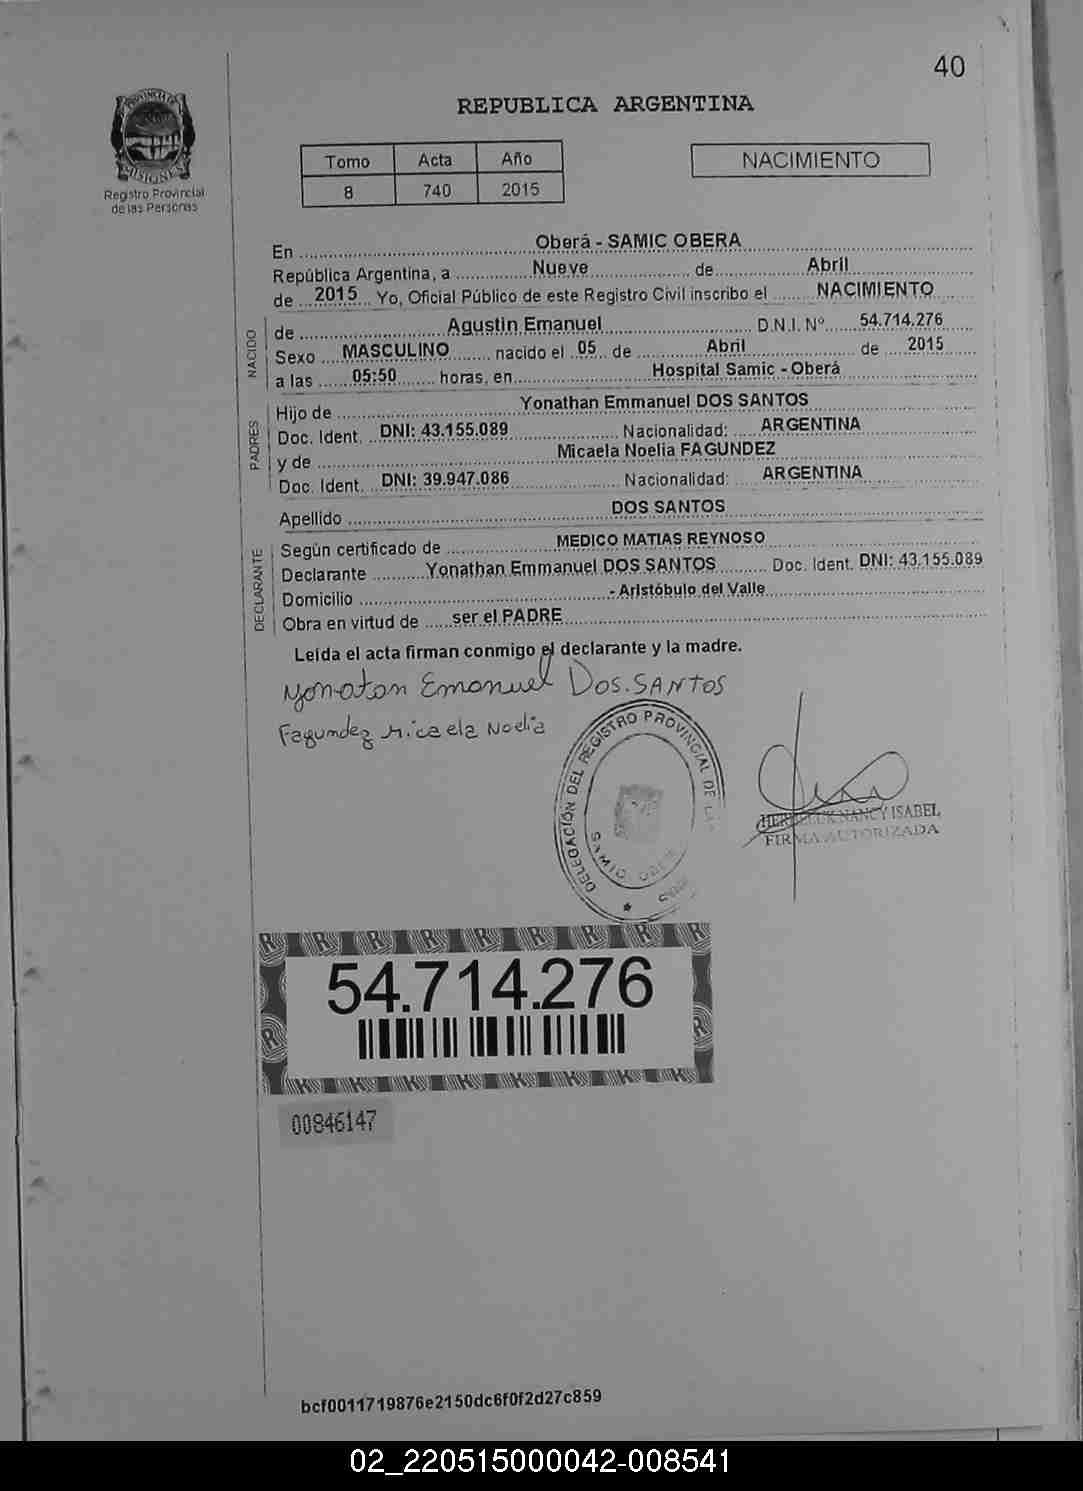 40
PROVINCIA DE
MISIONES
Registro Provincial
de las Personas
REPUBLICA ARGENTINA
Tomo Acta Año
8 740 2015
NACIMIENTO
En Oberá - SAMIC OBERA
República Argentina, a Nueve de Abril
de 2015 Yo, Oficial Público de este Registro Civil inscribo el NACIMIENTO
NACIDO
de Agustin Emanuel D.N.I. Nº 54.714.276
Sexo MASCULINO nacido el 05 de Abril de 2015
a las 05:50 horas, en Hospital Samic - Oberá
PADRES
Hijo de Yonathan Emmanuel DOS SANTOS
Doc. Ident. DNI: 43.155.089 Nacionalidad: ARGENTINA
y de Micaela Noelia FAGUNDEZ
Doc. Ident. DNI: 39.947.086 Nacionalidad: ARGENTINA
Apellido DOS SANTOS
DECLARANTE
Según certificado de MEDICO MATIAS REYNOSO
Declarante Yonathan Emmanuel DOS SANTOS Doc. Ident. DNI: 43.155.089
Domicilio - Aristóbulo del Valle
Obra en virtud de ser el PADRE
Leída el acta firman conmigo el declarante y la madre.
Yonatan Emanuel Dos.SANTOS
Fagundez Micaela Noelia
DELEGACIÓN DEL REGISTRO PROVINCIAL DE
SAMIC
NANCY ISABEL
FIRMA AUTORIZADA
R R R R R R R R R
54.714.276
R R
00846147
bcf0011719876e2150dc6f0f2d27c859
02_220515000042-008541